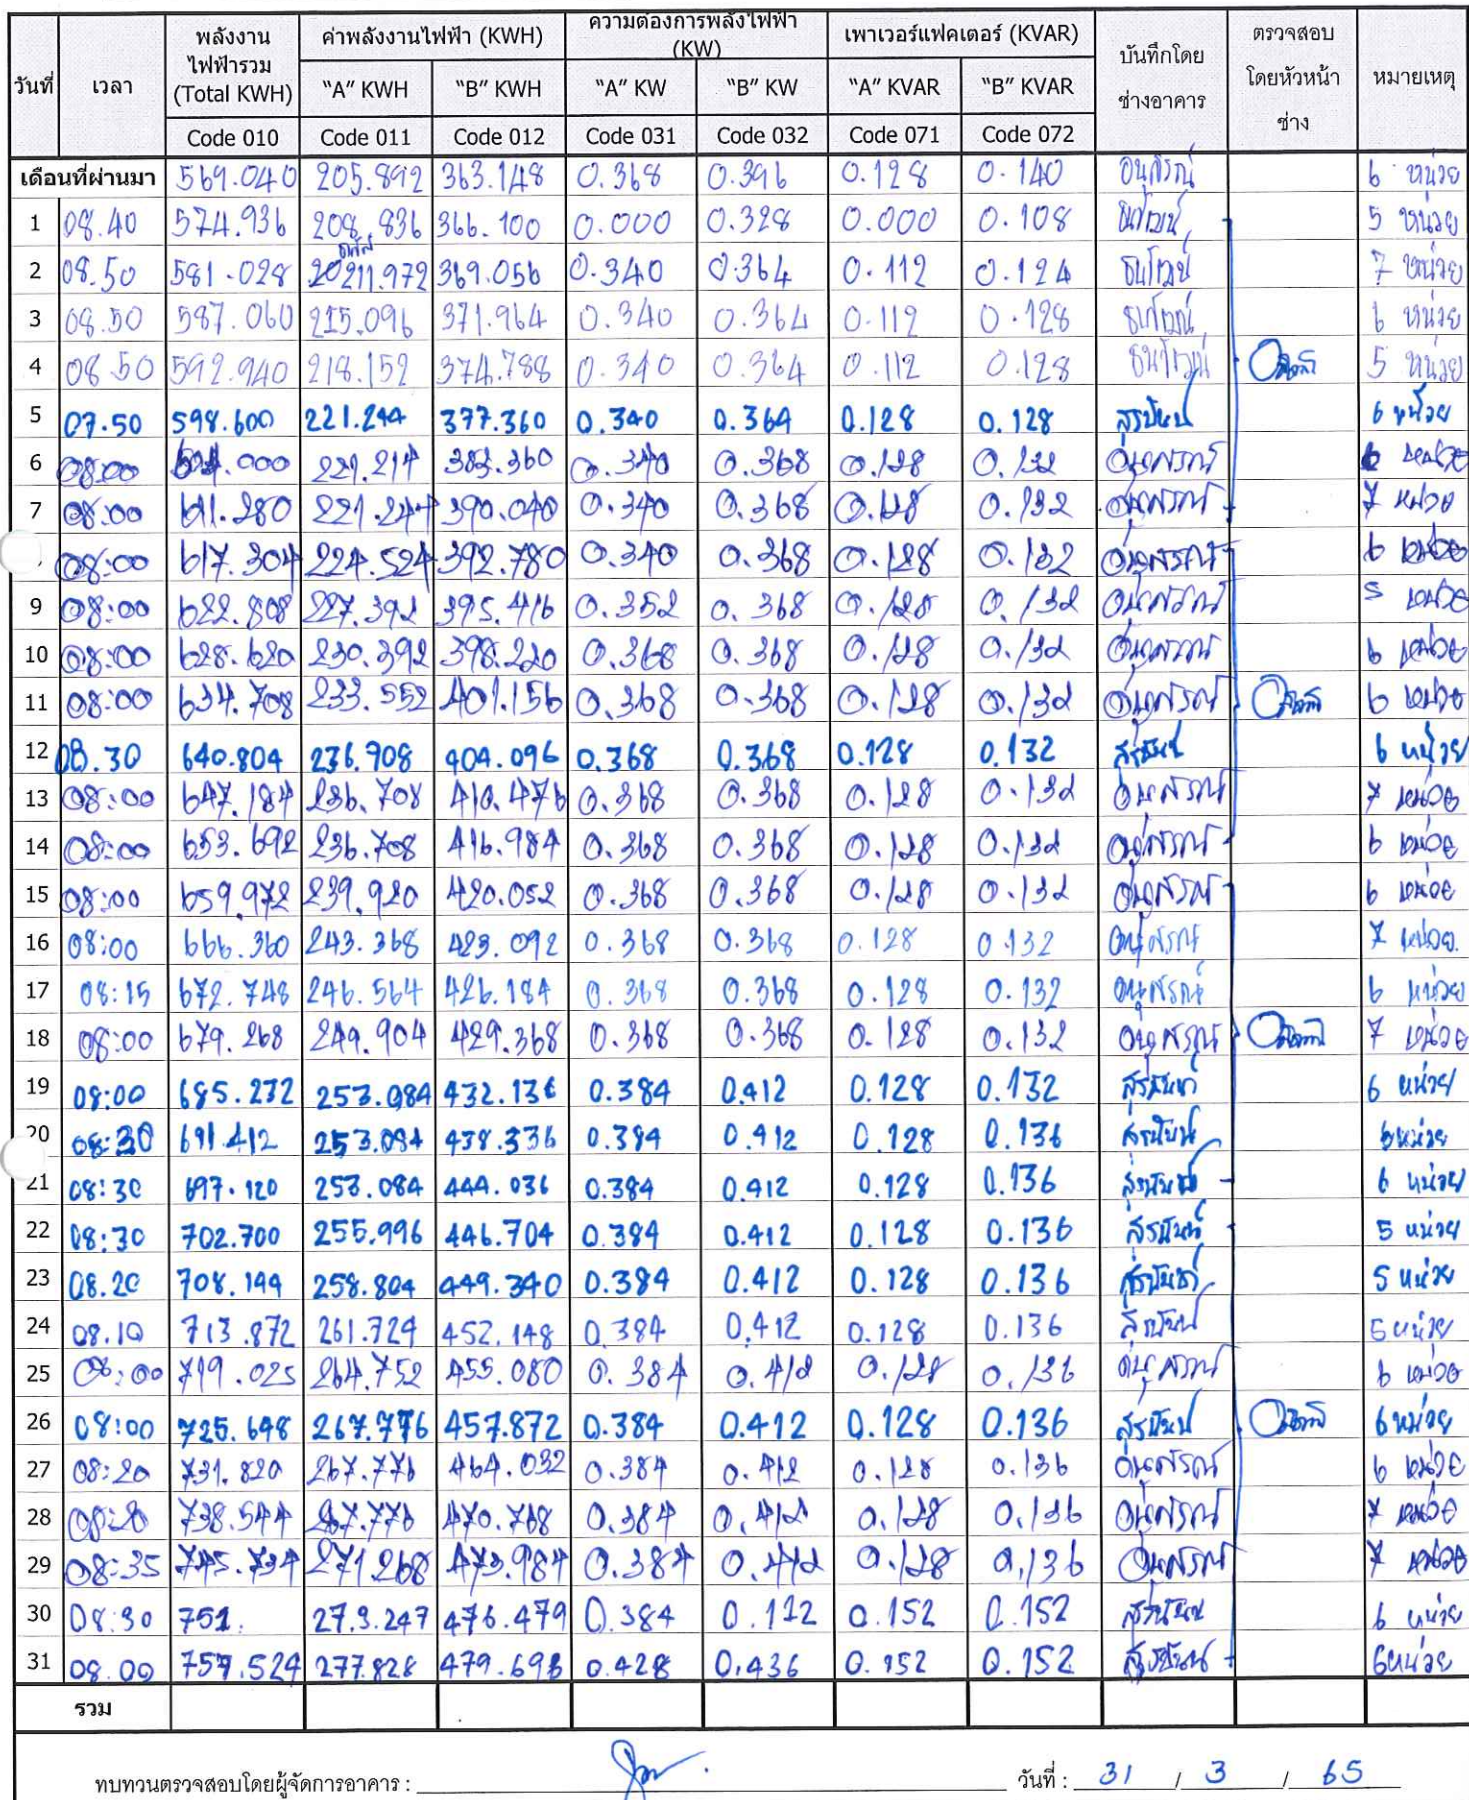 วันที่ เวลา พลังงานไฟฟ้ารวม (Total KWH) ค่าพลังงานไฟฟ้า (KWH) ความต้องการพลังไฟฟ้า (KW) เพาเวอร์แฟคเตอร์ (KVAR) บันทึกโดยช่างอาคาร ตรวจสอบโดยหัวหน้าช่าง หมายเหตุ
"A" KWH "B" KWH "A" KW "B" KW "A" KVAR "B" KVAR
Code 010 Code 011 Code 012 Code 031 Code 032 Code 071 Code 072
เดือนที่ผ่านมา 569.040 205.892 363.148 0.368 0.396 0.128 0.140 อนุสรณ์ 6 หน่วย
1 08.40 574.936 208.836 366.100 0.000 0.328 0.000 0.108 5 หน่วย
2 08.50 581.028 211.972 369.056 0.340 0.364 0.112 0.124 7 หน่วย
3 08.50 587.060 215.096 371.964 0.340 0.364 0.112 0.128 6 หน่วย
4 08.50 592.940 218.152 374.788 0.340 0.364 0.112 0.128 5 หน่วย
5 07.50 598.600 221.244 377.360 0.340 0.364 0.128 0.128 6 หน่วย
6 08:00 221.214 383.360 0.340 0.368 0.128 0.132 อนุสรณ์ 6 หน่วย
7 08:00 611.280 221.244 390.040 0.340 0.368 0.128 0.132 อนุสรณ์ 7 หน่วย
08:00 617.304 224.524 392.780 0.340 0.368 0.128 0.132 อนุสรณ์ 6 หน่วย
9 08:00 622.808 227.392 395.416 0.352 0.368 0.128 0.132 อนุสรณ์ 5 หน่วย
10 08:00 628.620 230.392 398.220 0.368 0.368 0.128 0.132 อนุสรณ์ 6 หน่วย
11 08:00 634.708 233.552 401.156 0.368 0.368 0.128 0.132 อนุสรณ์ 6 หน่วย
12 08.30 640.804 236.708 404.096 0.368 0.368 0.128 0.132 6 หน่วย
13 08:00 647.184 236.708 410.476 0.368 0.368 0.128 0.132 อนุสรณ์ 7 หน่วย
14 08:00 653.692 236.708 416.984 0.368 0.368 0.128 0.132 อนุสรณ์ 6 หน่วย
15 08:00 659.972 239.920 420.052 0.368 0.368 0.128 0.132 อนุสรณ์ 6 หน่วย
16 08:00 666.360 243.368 423.092 0.368 0.368 0.128 0.132 อนุสรณ์ 7 หน่วย.
17 08:15 672.748 246.564 426.184 0.368 0.368 0.128 0.132 อนุสรณ์ 6 หน่วย
18 08:00 679.268 249.904 429.368 0.368 0.368 0.128 0.132 อนุสรณ์ 7 หน่วย
19 08:00 685.232 253.084 432.136 0.384 0.412 0.128 0.132 6 หน่วย
20 08:30 691.412 253.084 438.336 0.384 0.412 0.128 0.136 6 หน่วย
21 08:30 697.120 253.084 444.036 0.384 0.412 0.128 0.136 6 หน่วย
22 08:30 702.700 255.996 446.704 0.384 0.412 0.128 0.136 5 หน่วย
23 08.20 708.144 258.804 449.340 0.384 0.412 0.128 0.136 5 หน่วย
24 08.10 713.872 261.724 452.148 0.384 0.412 0.128 0.136 5 หน่วย
25 08:00 719.025 264.752 455.080 0.384 0.412 0.128 0.136 อนุสรณ์ 6 หน่วย
26 08:00 725.648 267.776 457.872 0.384 0.412 0.128 0.136 6 หน่วย
27 08:20 731.820 267.776 464.032 0.384 0.412 0.128 0.136 อนุสรณ์ 6 หน่วย
28 08:20 738.544 267.776 470.768 0.384 0.412 0.128 0.136 อนุสรณ์ 7 หน่วย
29 08:35 745.734 271.268 473.984 0.384 0.412 0.128 0.136 อนุสรณ์ 7 หน่วย
30 08:30 751. 273.247 476.479 0.384 0.112 0.152 0.152 6 หน่วย
31 08.00 757.524 277.828 479.696 0.428 0.436 0.152 0.152 6 หน่วย
รวม
ทบทวนตรวจสอบโดยผู้จัดการอาคาร : วันที่ : 31 / 3 / 65